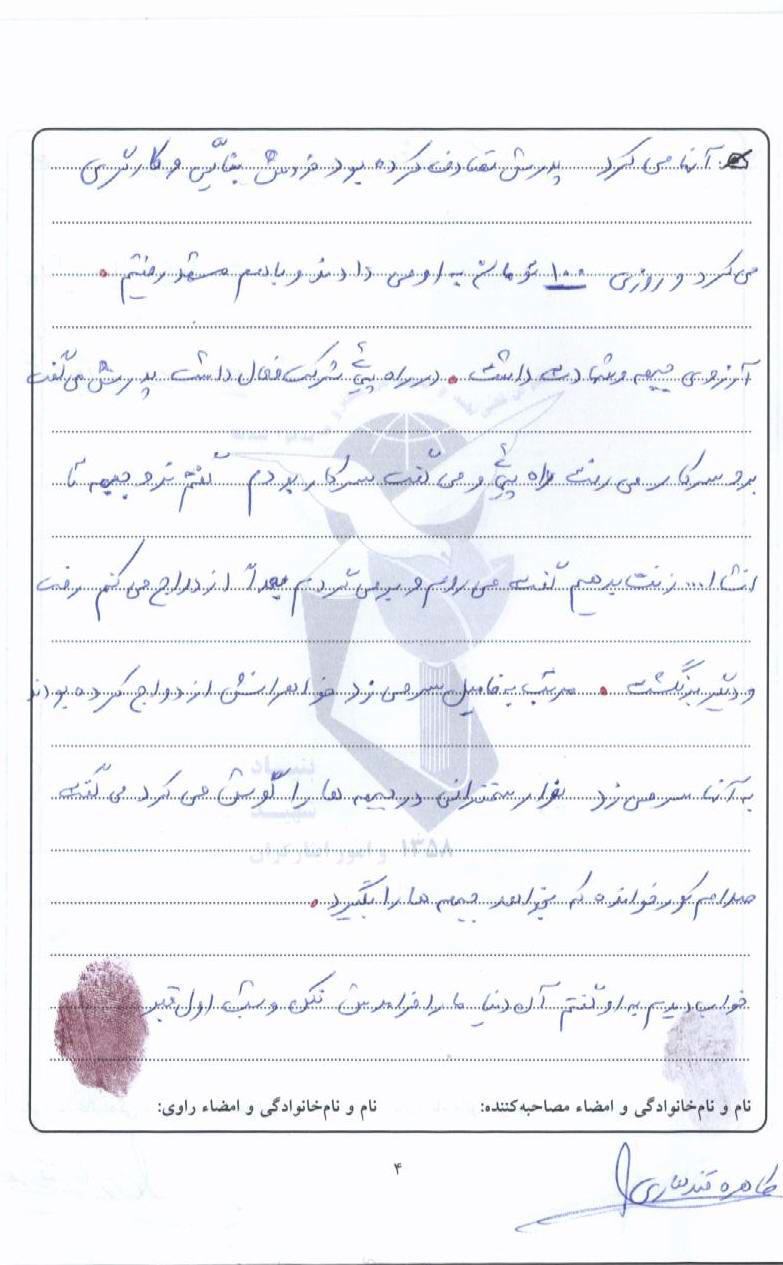 آنها می کرد پدرش تصادف کرده بود خودش بنائی و کارگری
می کرد و روزی ۱۰۰ تومان به او می دادند و باهم مشهد رفتیم .
آرزوی جبهه و شهادت داشت . در راه پیمائی شرکت فعال داشت پدرش می گفت
برو سر کار می رفت راه پیمائی و می گفت سر کار بودم گفتم نرو جبهه تا
انشا ا... زنت بدهیم گفت می روم و برمی گردم بعداً ازدواج می کنم رفت
و دیگر برنگشت . مرتب به فامیل سر می زد خواهرانش ازدواج کرده بودند
به آنها سر می زد نوار سخنرانی در جبهه ها را گوش می کرد می گفت
صدام کور خوانده که بخواهد جبهه ها را بگیرد .
خواب دیدم به او گفتم آن دنیا ما را فراموش نکن و شب اول قبر
بنیاد
شهید
۱۳۵۸ و امور ایثارگران
نام و نام‌خانوادگی و امضاء مصاحبه‌کننده: نام و نام‌خانوادگی و امضاء راوی:
۴
طاهره قندهاری